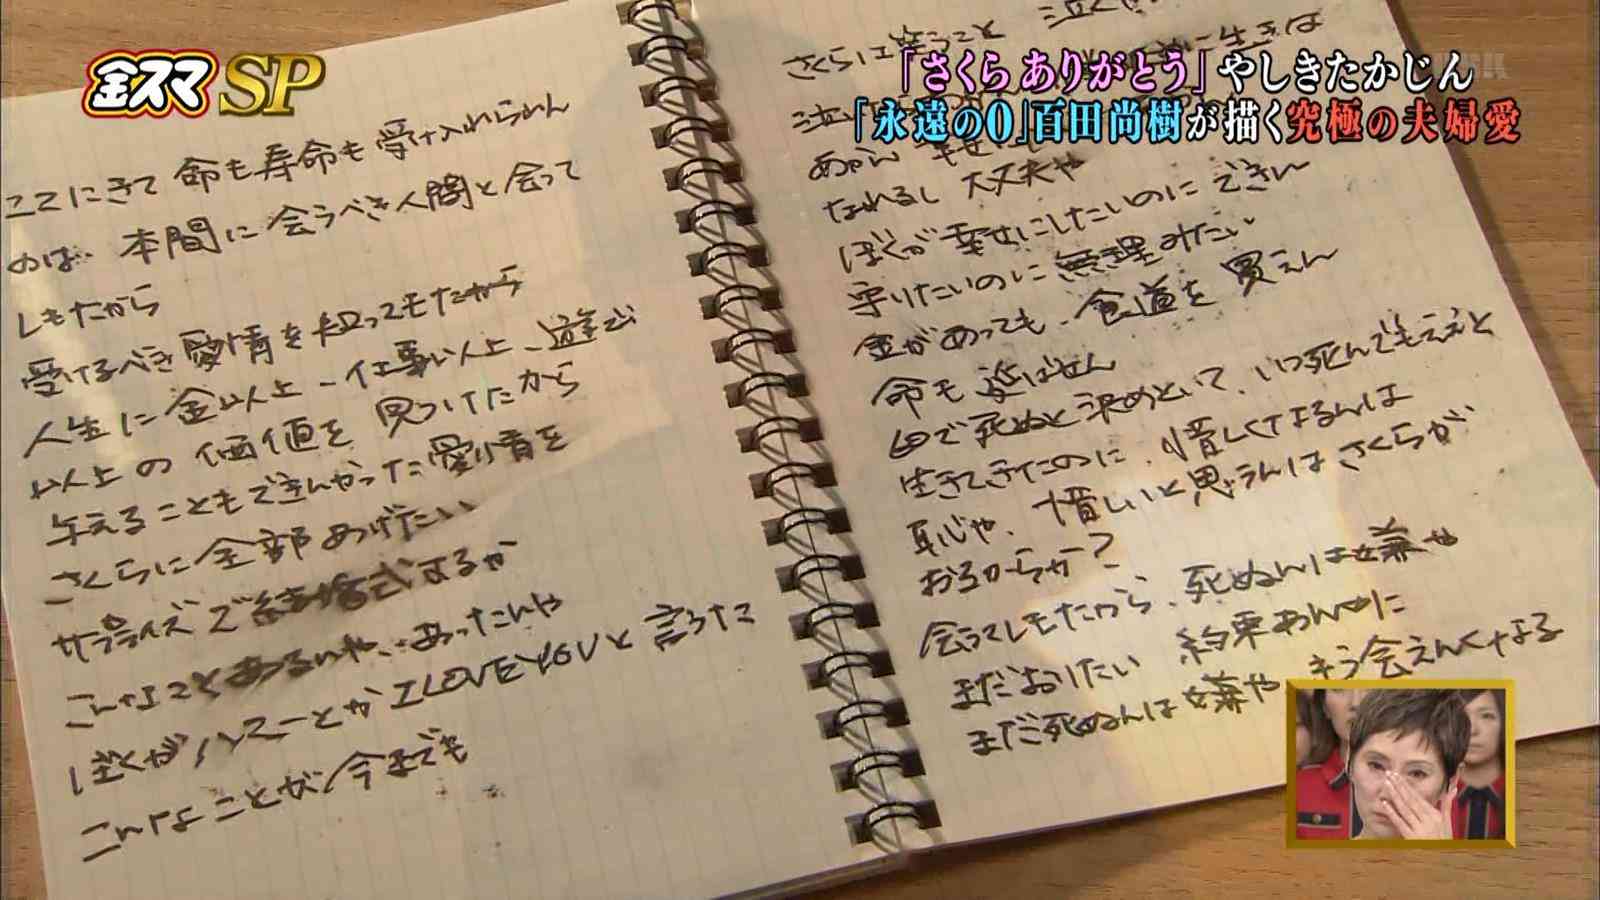 金スマSP
「さくら ありがとう」やしきたかじん
「永遠の0」百田尚樹が描く究極の夫婦愛
ここにきて 命も寿命も受け入れられん
のは 本間に会うべき人間と会って
しもたから
受けるべき愛情を知ってもたから
人生に金以上、仕事以上、遊び
以上の価値を見つけたから
与えることもできんやった愛情を
さくらに全部あげたい
サプライズで結婚式するか
こんなことあるんや、あったんや
ぼくが ハニーとか I LOVE YOUと言うた
こんなことが 今までも
さくらは 泣く
あかん 幸せに
なれるし 大丈夫や
ぼくが幸せにしたいのにできん
守りたいのに無理みたい
金があっても、食道を買えん
命も延ばせん
で死ぬと決めといて、いつ死んでもええと
生きてきたのに、惜しくなるんは
恥じや、惜しいと思うんはさくらが
おるからか?
会うてしもたから、死ぬんは嫌や
まだおりたい 約束あんのに
まだ死ぬんは嫌や もう会えんくなる